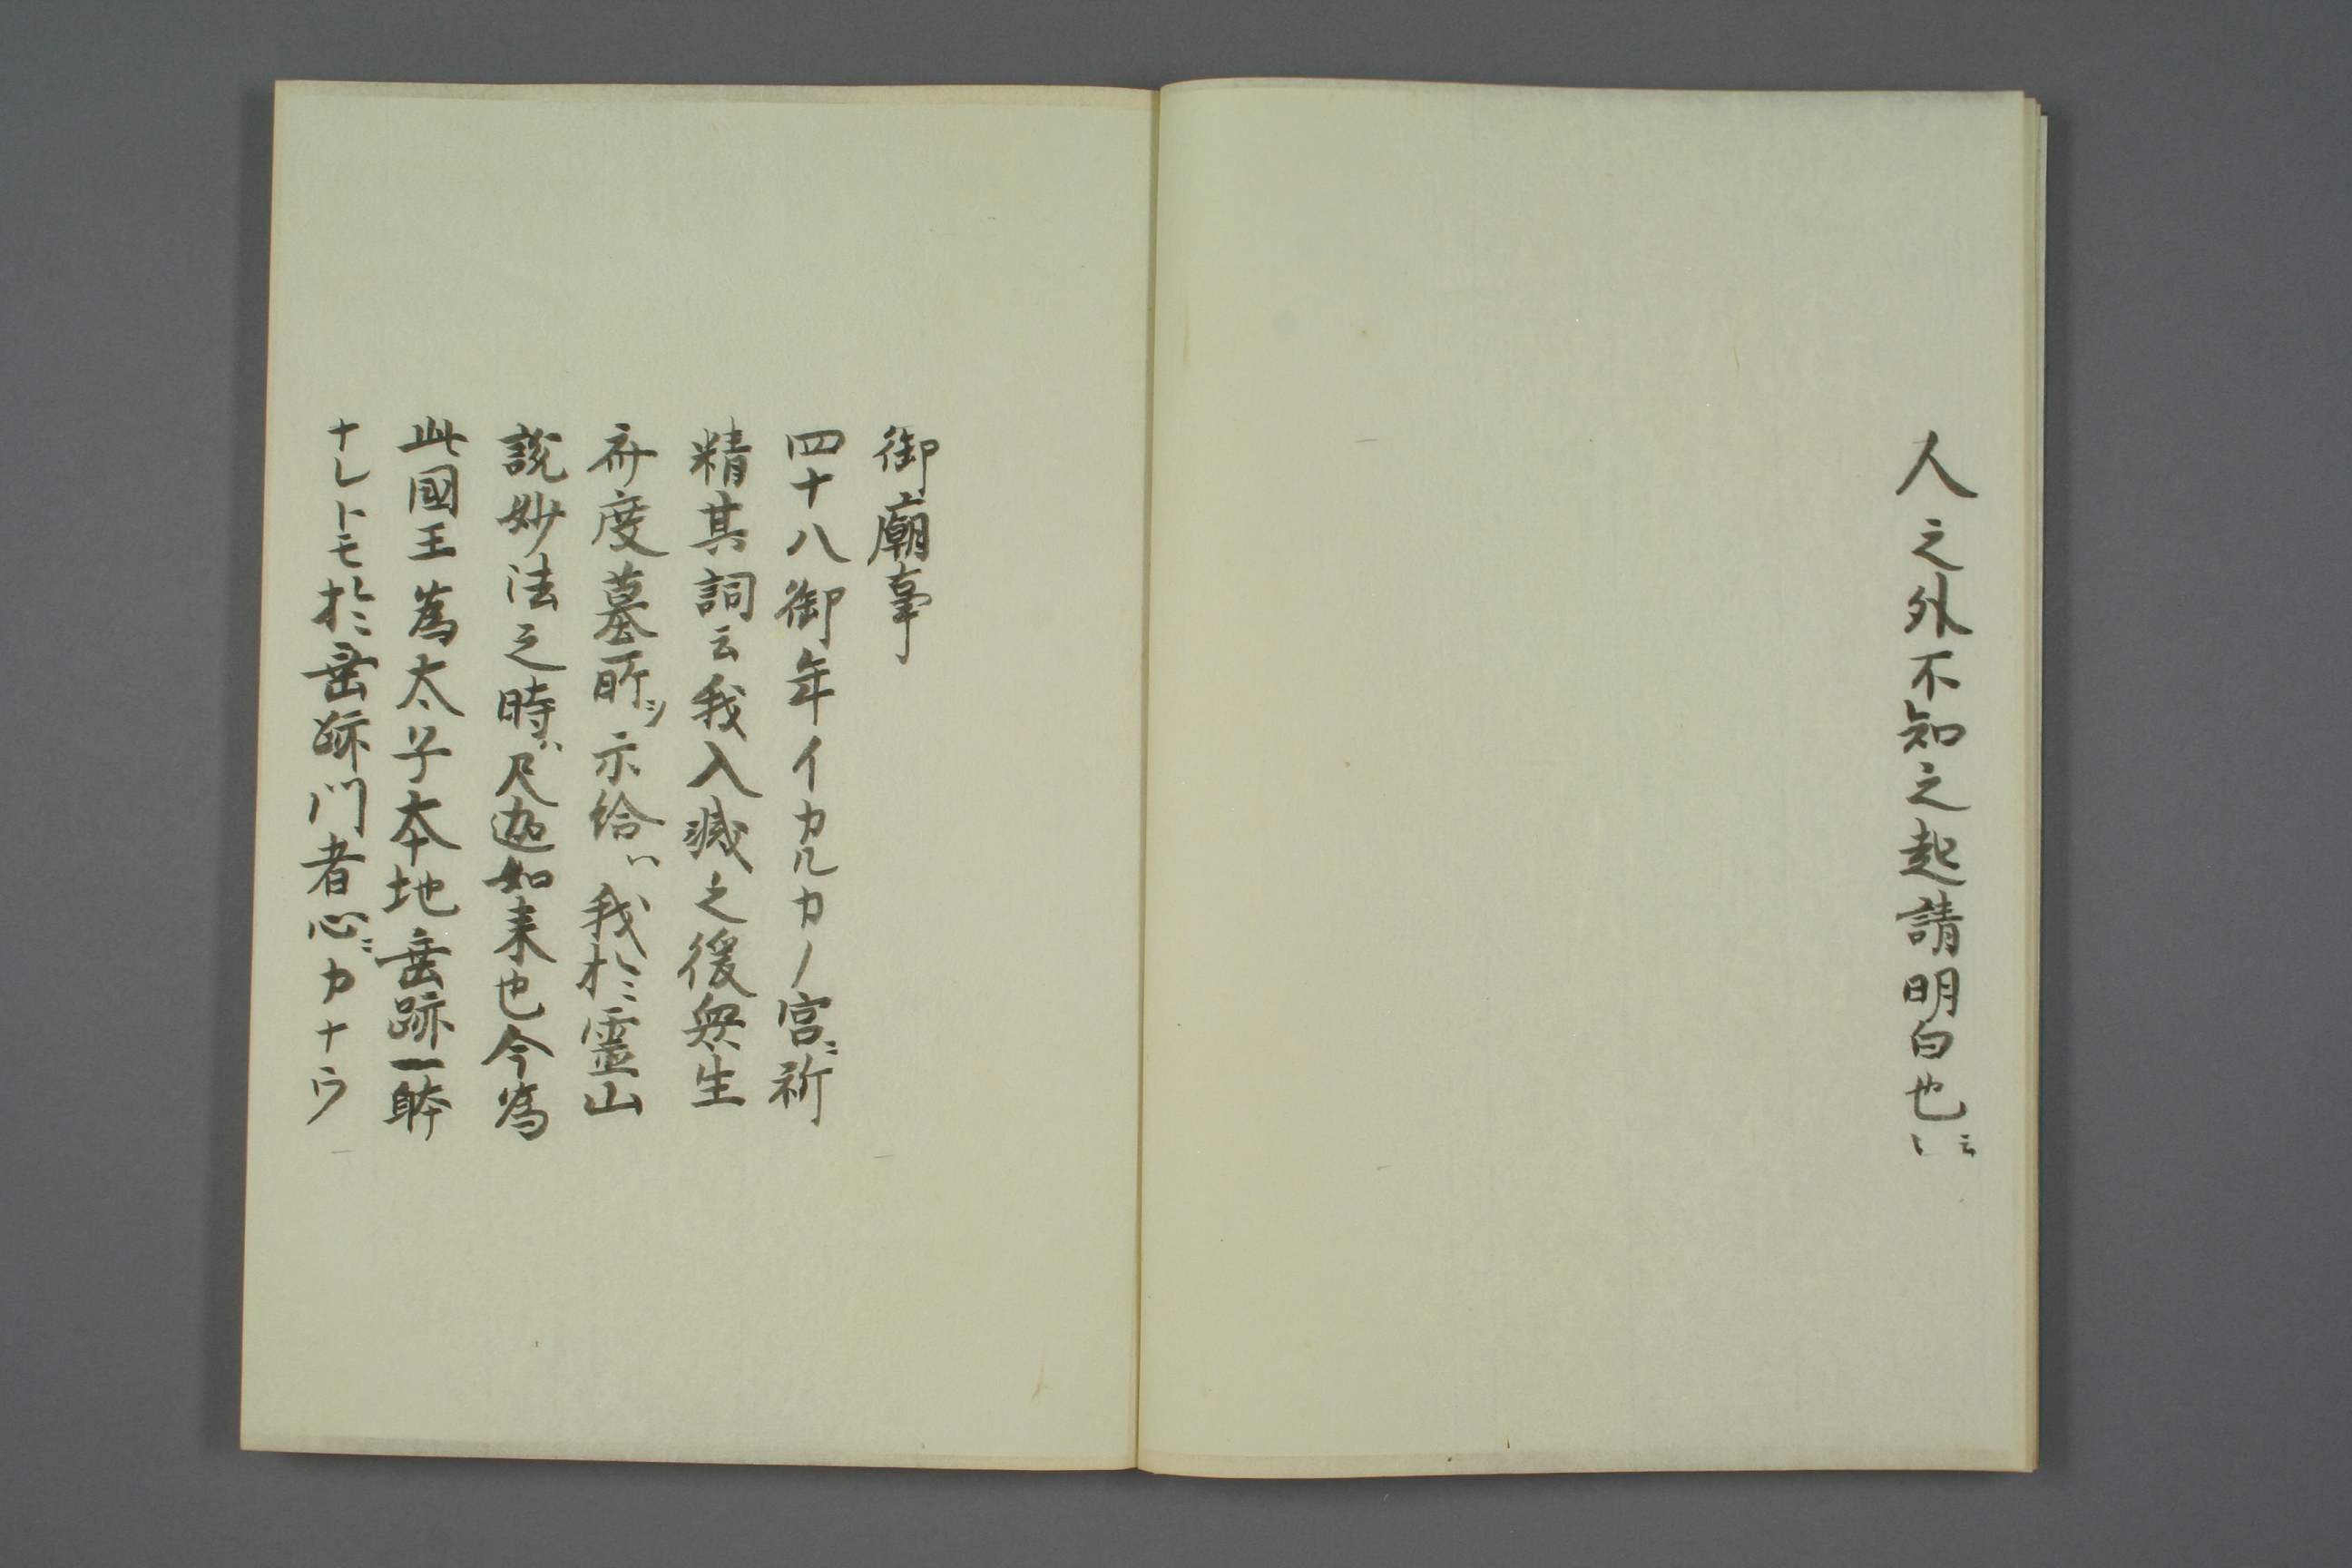 人之外不知之起請明白也云々
御廟事
四十八御年イカルカノ宮ニ祈
精其詞云我入滅之後無生
弁度墓所ヲ示給ハ我於霊山
説妙法之時ハ尺迦如来也今為
此國王為太子本地垂跡一躰
ナレトモ於垂跡門者心ニカナウ